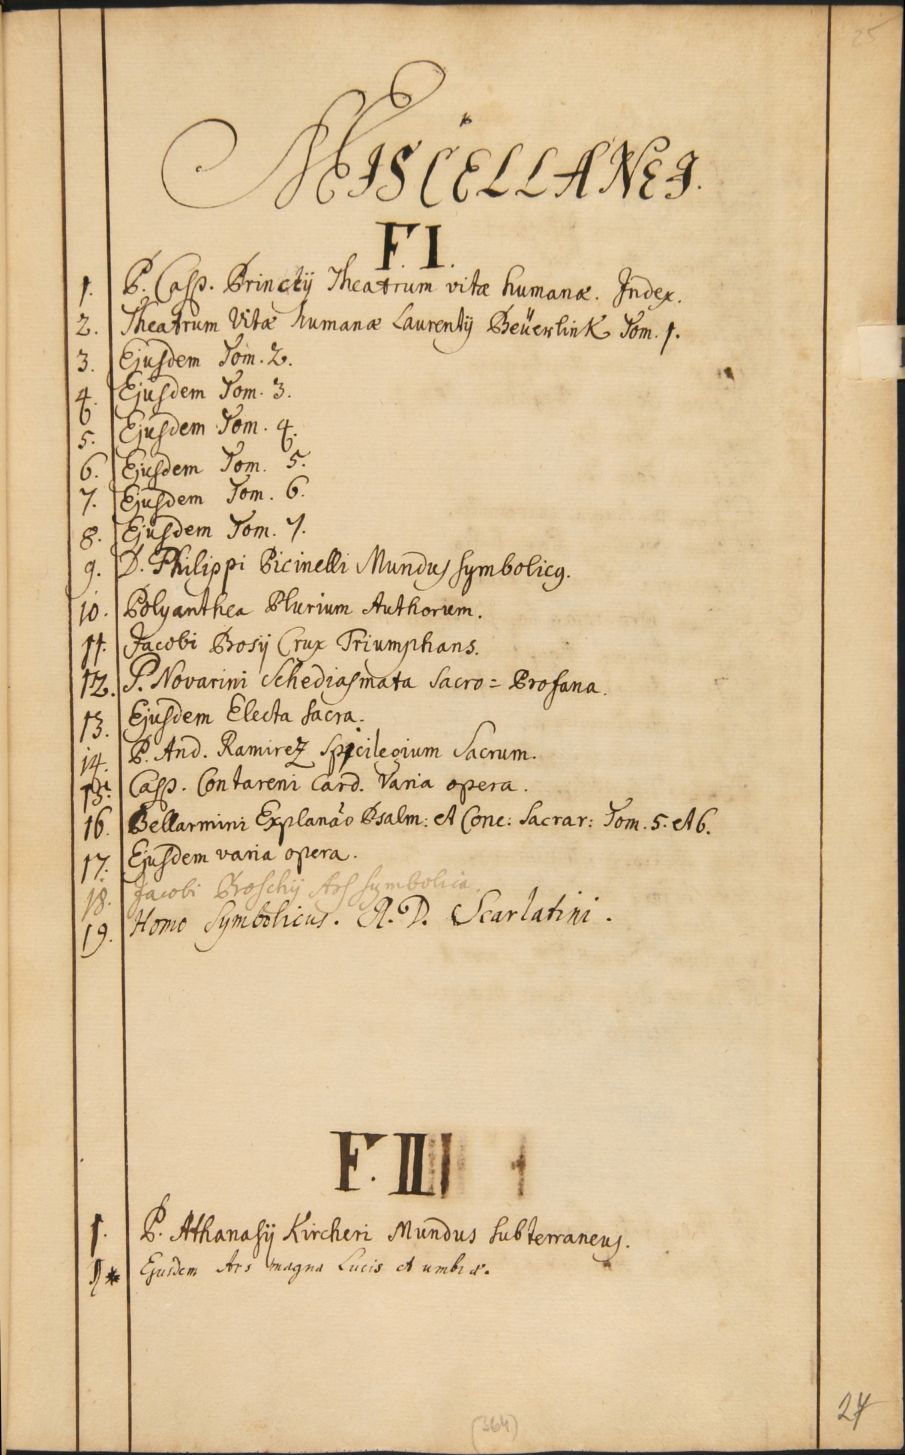 25
MISCELLANEI.
F. I.
1. P. Casp. Princtij Theatrum vitæ humanæ. Index.
2. Theatrum Vitæ humanæ Laurentij Beüerlink Tom. 1.
3. Ejusdem Tom. 2.
4. Ejusdem Tom. 3.
5. Ejusdem Tom. 4.
6. Ejusdem Tom. 5.
7. Ejusdem Tom. 6.
8. Ejusdem Tom. 7.
9. D. Philippi Picinelli Mundus symbolicq.
10. Polyanthea Plurium Authorum.
11. Jacobi Bosij Crux Triumphans.
12. P. Novarini Schediasmata Sacro = Profana.
13. Ejusdem Electa sacra.
14. P. And. Ramirez Spicilegium Sacrum.
15. Casp. Contareni Card. Varia opera.
16. Bellarmini Explanão Psalm: et Conc: Sacrar: Tom. 5. et 6.
17. Ejusdem varia opera.
18. Jacobi Boschij Ars symbolica.
19. Homo Symbolicus. A. D. Scarlatini.
F. II
1. P. Athanasij Kircheri Mundus subterraneus.
2 * Ejusdem Ars magna Lucis et umbræ.
(364)
24